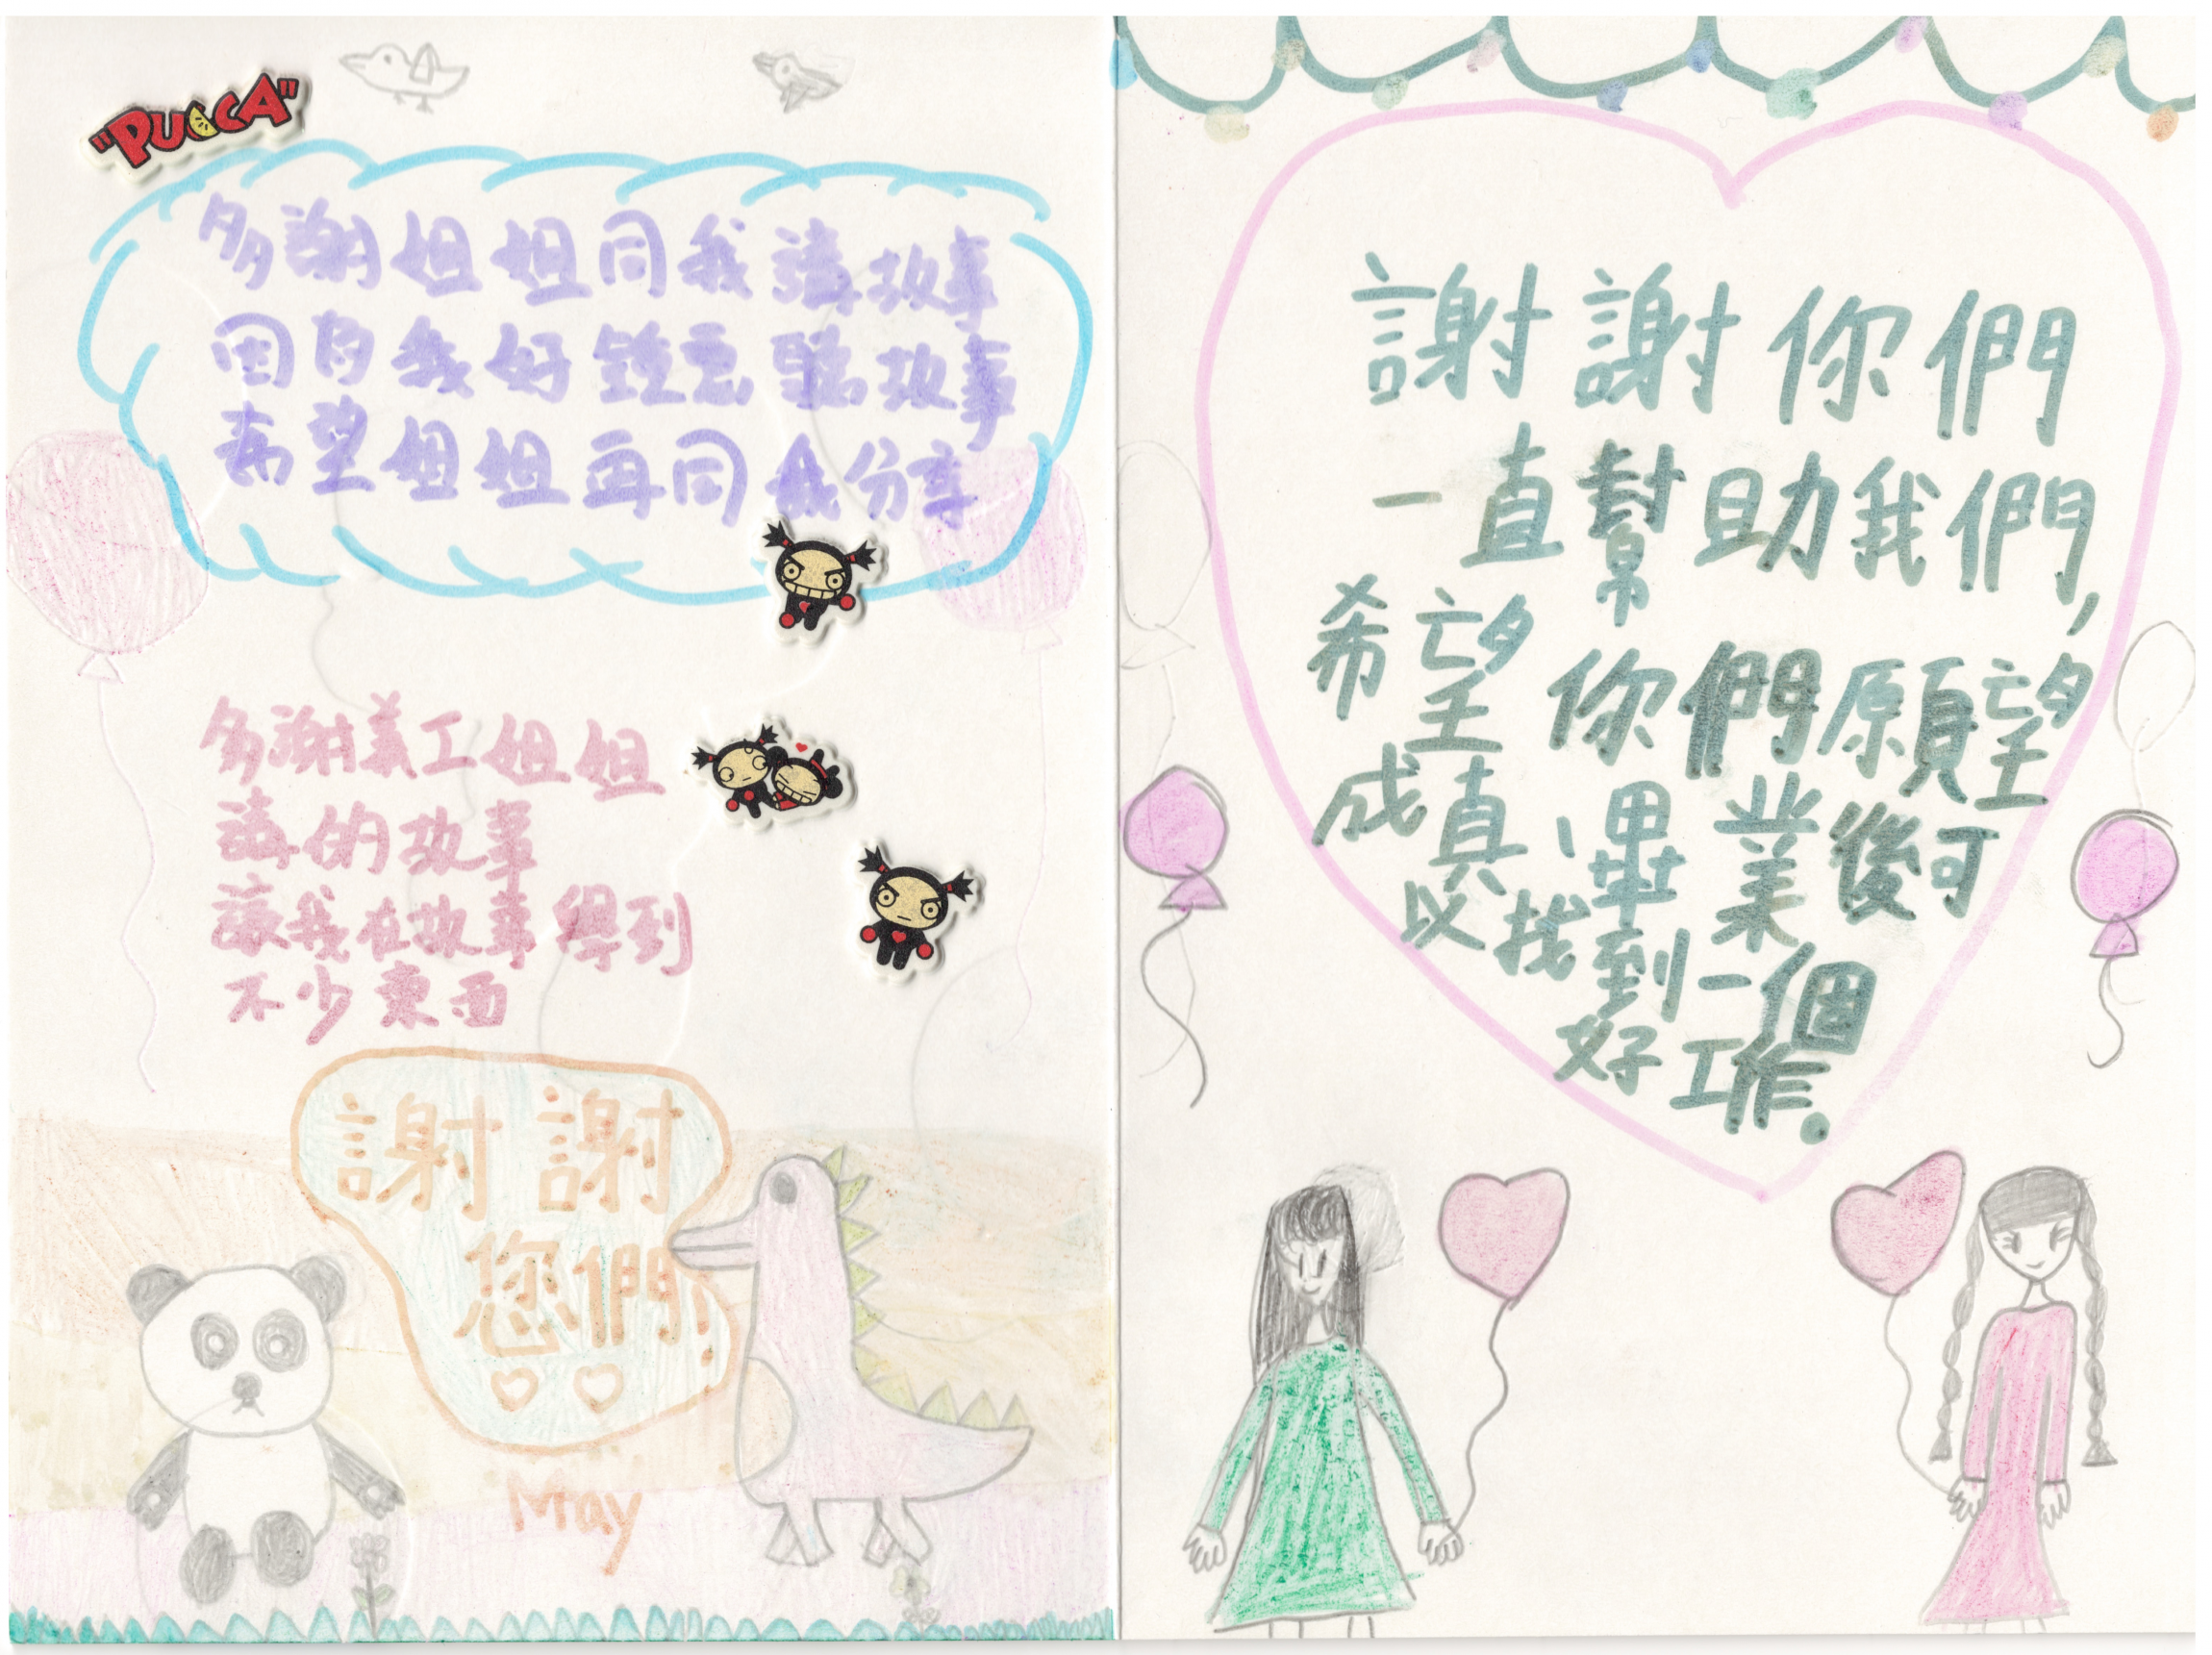 "PUCCA"
多謝姐姐同我講故事
因為我好鐘意聽故事
希望姐姐再同我分享
多謝義工姐姐
講的故事
讓我在故事學到
不少東西
謝謝
您們!
May
謝謝你們
一直幫助我們,
希望你們願望
成真、畢業後可
以找到一個
好工作.